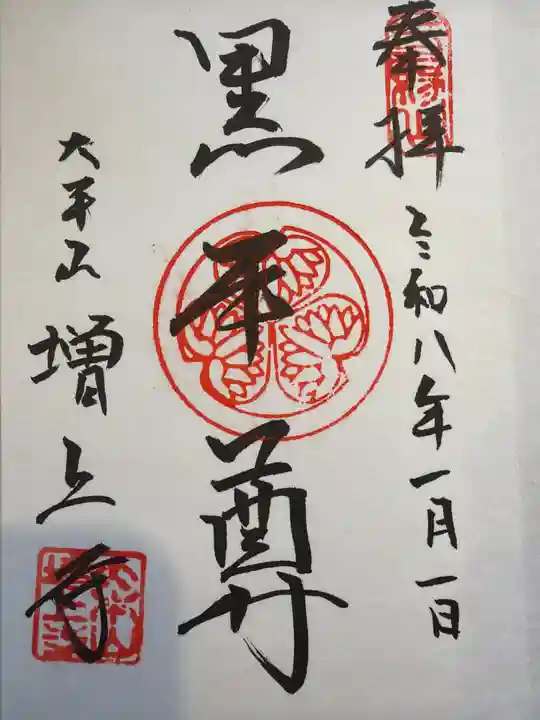 奉拝
令和八年一月一日
黒本尊
大本山増上寺